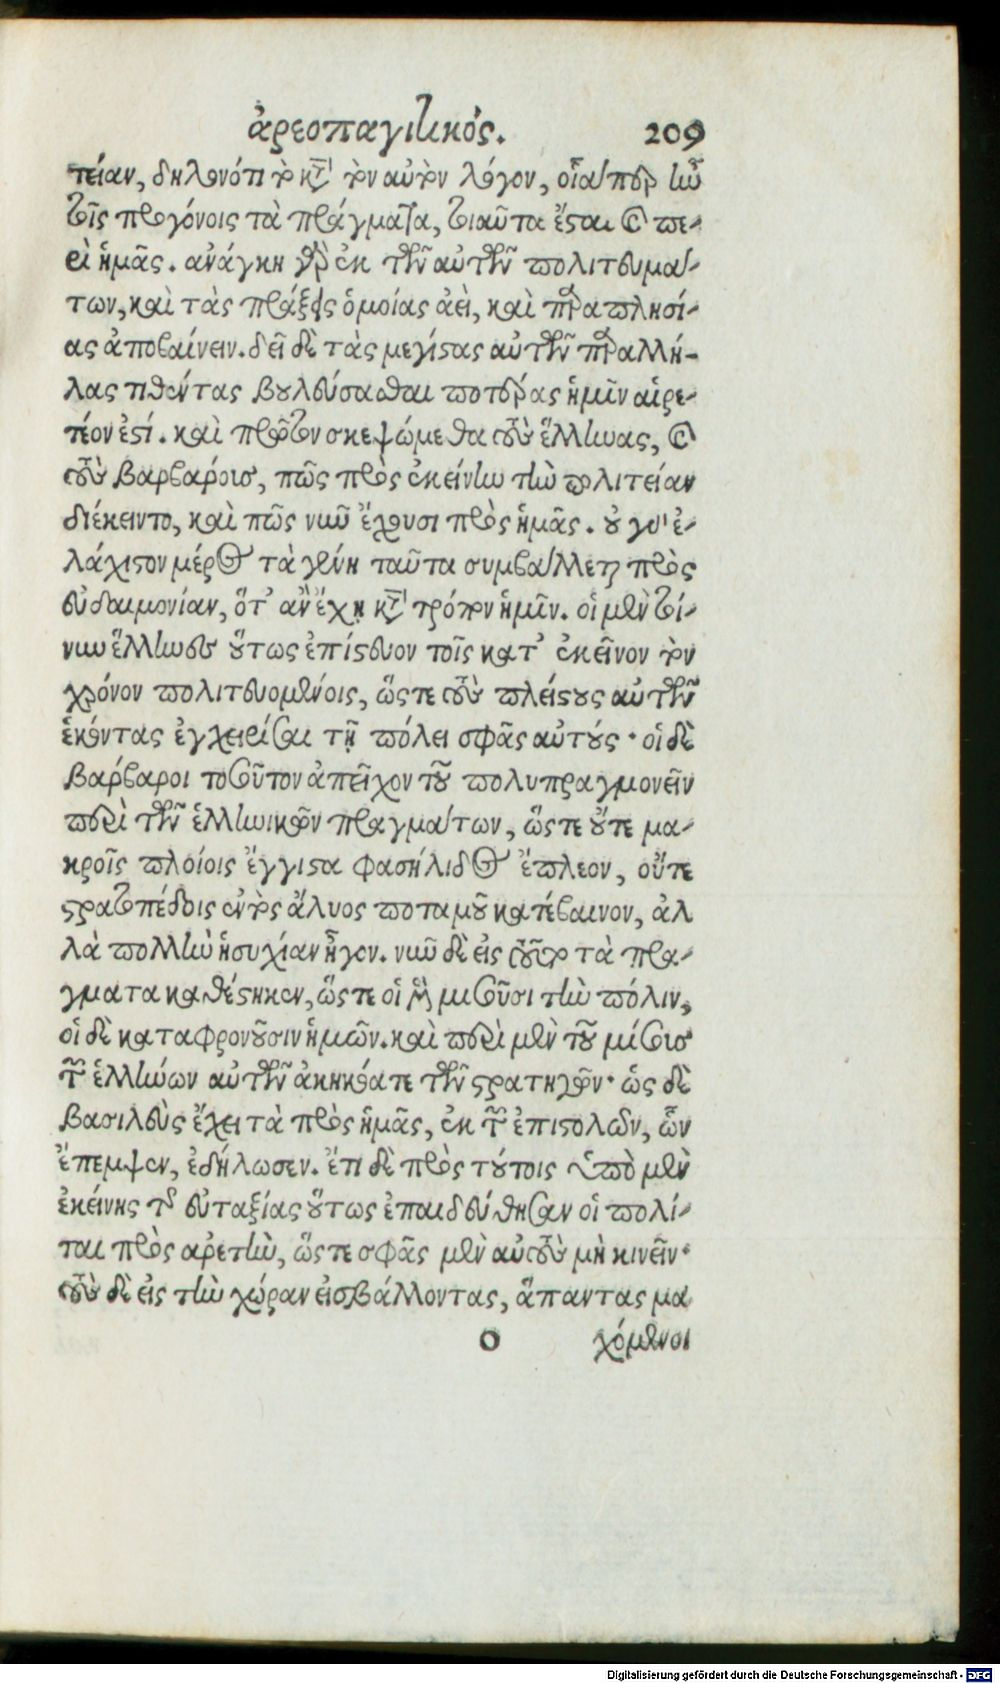 ἀρεοπαγιτικός. 209
τείαν, δηλονότι τὸ κατὰ τὸν αὐτὸν λόγον, οἷάπερ ἦν
τοῖς προγόνοις τὰ πράγματα, τοιαῦτα ἔσται καὶ πε-
ρὶ ἡμᾶς. ἀνάγκη γὰρ ἐκ τῶν αὐτῶν πολιτευμά-
των, καὶ τὰς πράξεις ὁμοίας ἀεὶ, καὶ παραπλησί-
ας ἀποβαίνειν. δεῖ δὲ τὰς μεγίστας αὐτῶν παραλλή-
λας τιθέντας βουλεύσασθαι ποτέρας ἡμῖν αἱρε-
τέον ἐστί. καὶ πρῶτον σκεψώμεθα τοὺς ἕλληνας, καὶ
τοὺς βαρβάρους, πῶς πρὸς ἐκείνην τὴν πολιτείαν
διέκειντο, καὶ πῶς νῦν ἔχουσι πρὸς ἡμᾶς. οὐ γὰρ ἐ-
λάχιστον μέρος τὰ γένη ταῦτα συμβάλλεται πρὸς
εὐδαιμονίαν, ὅτ' ἂν ἔχῃ κατὰ τρόπον ἡμῖν. οἱ μὲν τοί-
νυν ἕλληνες οὕτως ἐπίστευον τοῖς κατ' ἐκεῖνον τὸν
χρόνον πολιτευομένοις, ὥστε τοὺς πλείστους αὐτῶν
ἑκόντας ἐγχειρίσαι τῇ πόλει σφᾶς αὐτούς· οἱ δὲ
βάρβαροι τοσοῦτον ἀπεῖχον τοῦ πολυπραγμονεῖν
περὶ τῶν ἑλληνικῶν πραγμάτων, ὥστε οὔτε μα-
κροῖς πλοίοις ἔγγιστα φασήλιδος ἔπλεον, οὔτε
στρατοπέδοις ἐντὸς ἅλυος ποταμοῦ κατέβαινον, ἀλ
λὰ πολλὴν ἡσυχίαν ἦγον. νῦν δὲ εἰς τοῦτο τὰ πρά-
γματα καθέστηκεν, ὥστε οἱ μὲν μισοῦσι τὴν πόλιν,
οἱ δὲ καταφρονοῦσιν ἡμῶν. καὶ περὶ μὲν τοῦ μίσους
τῶν ἑλλήνων αὐτῶν ἀκηκόατε τῶν στρατηγῶν· ὡς δὲ
βασιλεὺς ἔχει τὰ πρὸς ἡμᾶς, ἐκ τῶν ἐπιστολῶν, ὧν
ἔπεμψεν, ἐδήλωσεν. ἔτι δὲ πρὸς τούτοις ὑπὸ μὲν
ἐκείνης τῆς εὐταξίας οὕτως ἐπαιδεύθησαν οἱ πολί-
ται πρὸς ἀρετὴν, ὥστε σφᾶς μὲν αὐτοὺς μὴ κινεῖν·
τοὺς δὲ εἰς τὴν χώραν εἰσβάλλοντας, ἅπαντας μα
ο χόμενοι
Digitalisierung gefördert durch die Deutsche Forschungsgemeinschaft - DFG